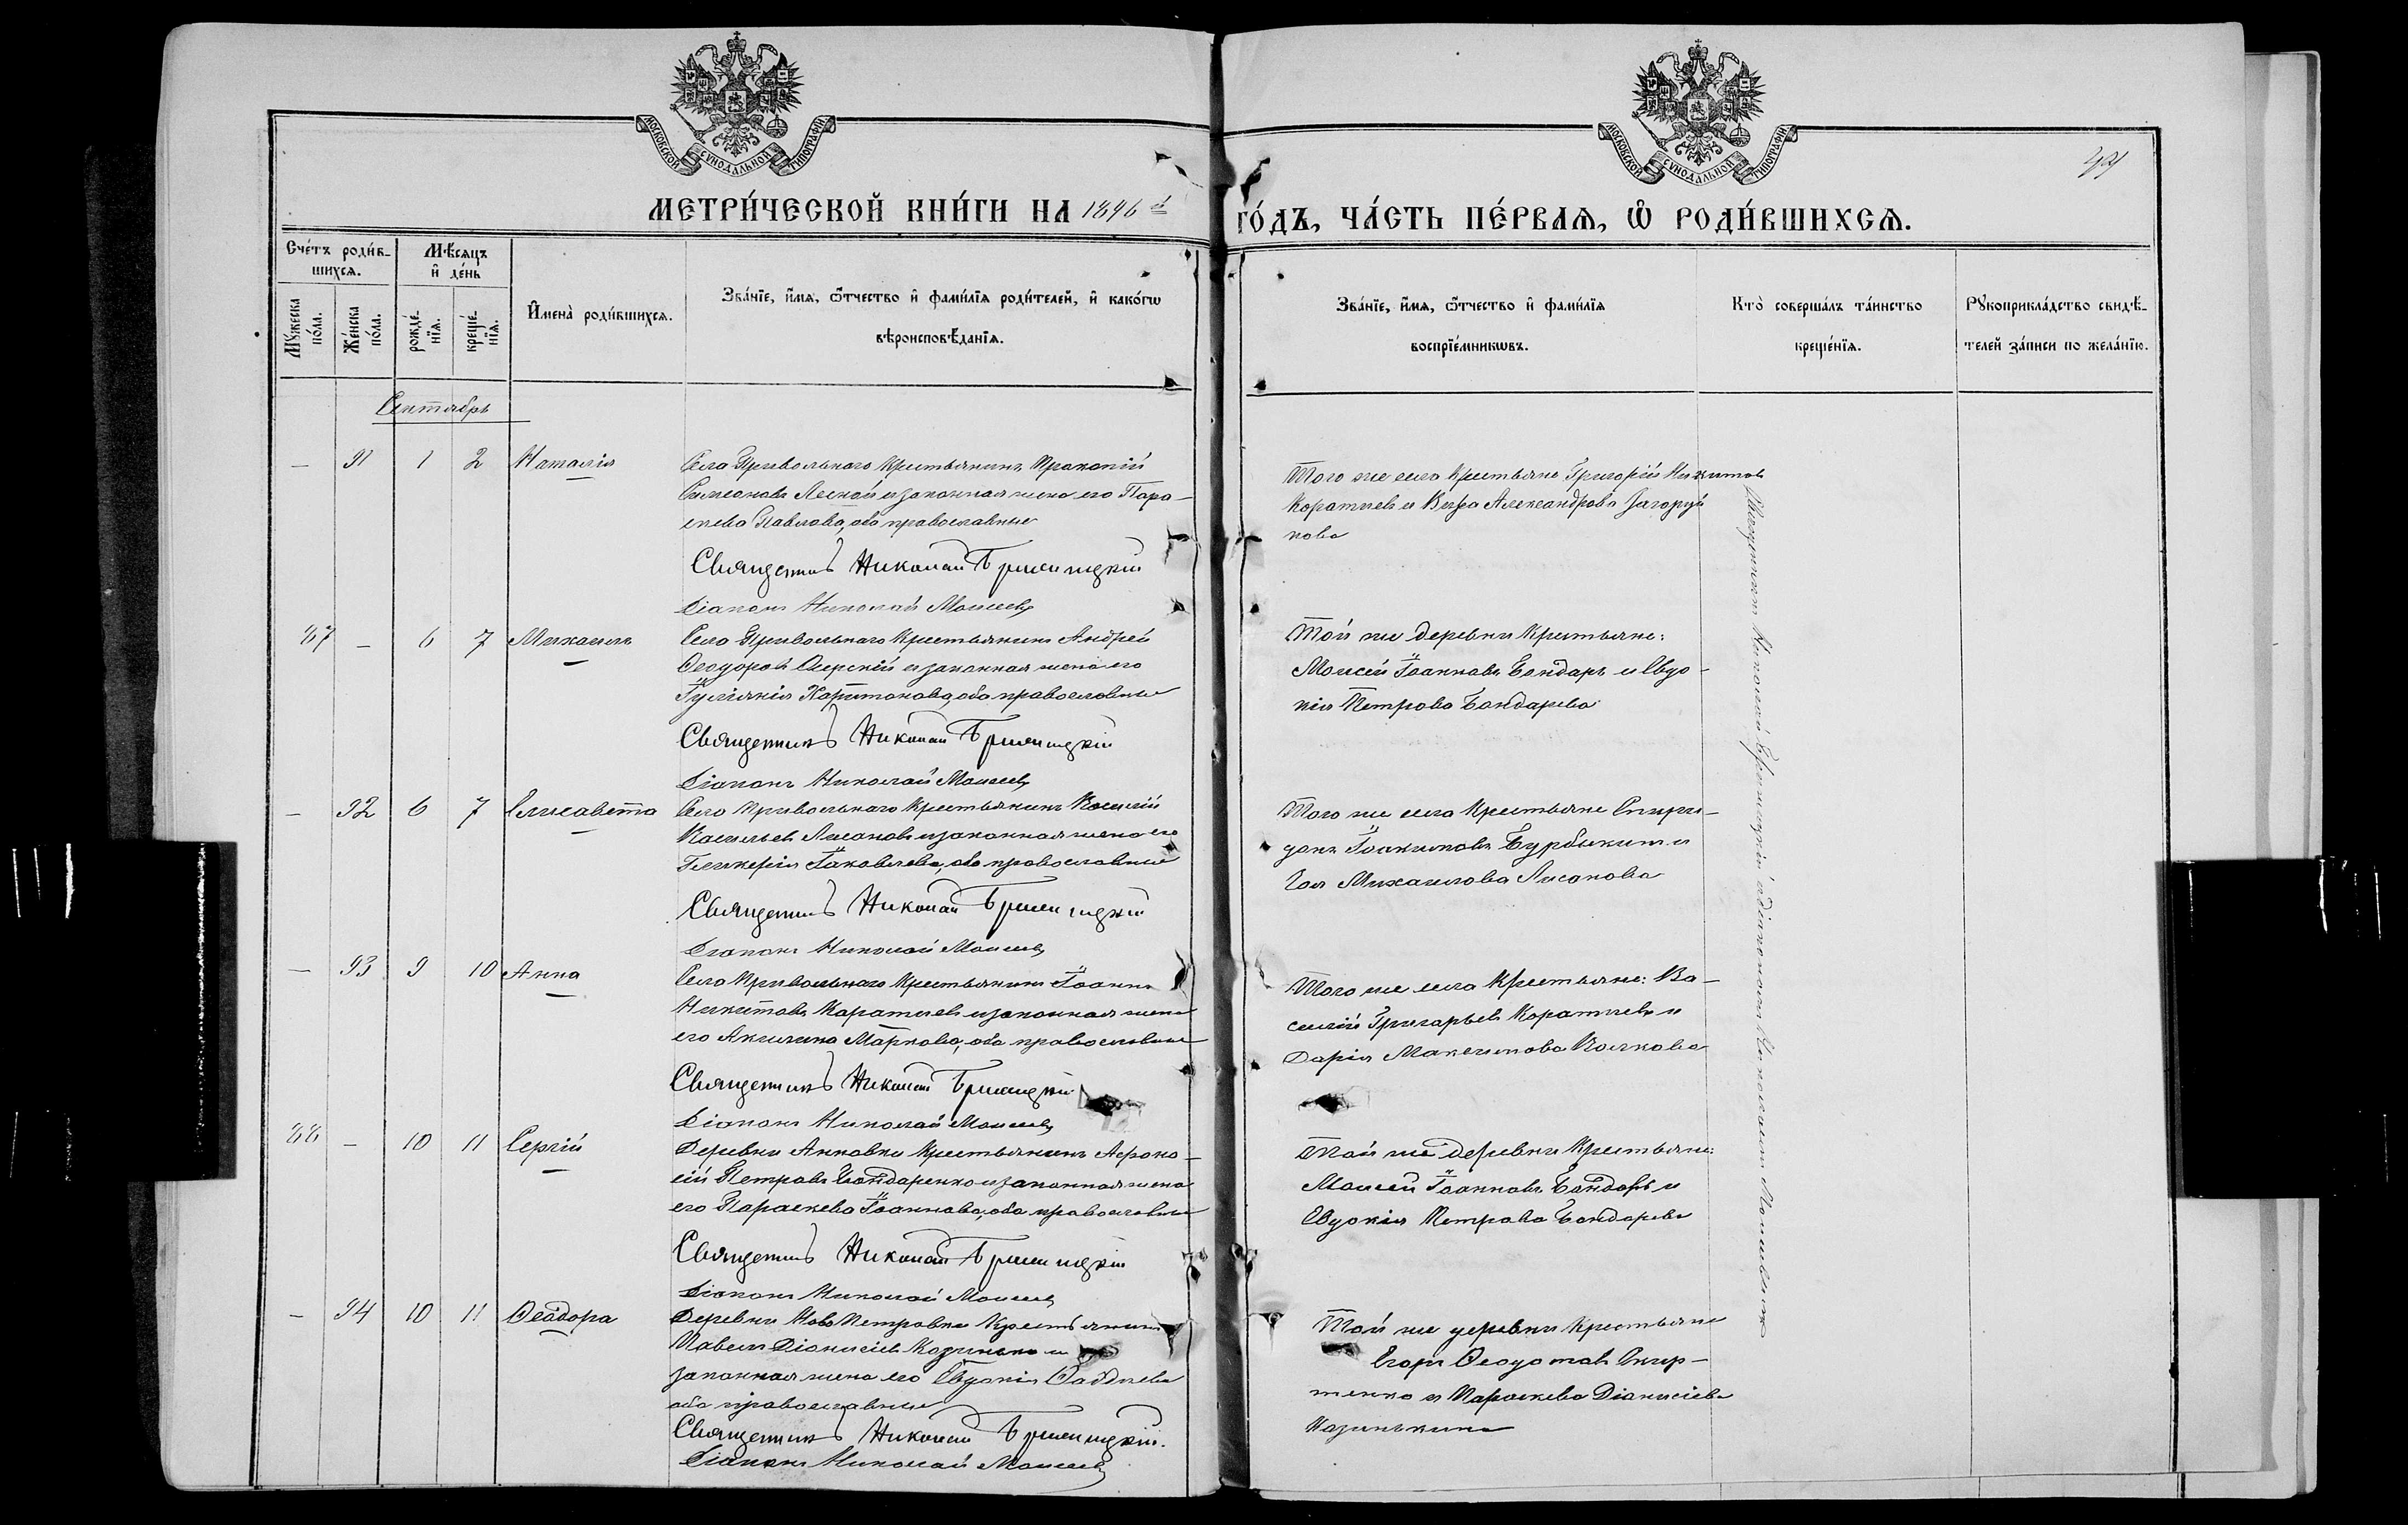 МОСКОВСКОЙ СУНОДАЛЬНОЙ ТИПОГРАФІИ
МОСКОВСКОЙ СУНОДАЛЬНОЙ ТИПОГРАФІИ
МЕТРИ́ЧЕСКОЙ КНИ́ГИ НА 1896 й ГО́ДЪ, ЧА́СТЬ ПЕ́РВАЯ, Ѽ РОДИ́ВШИХСЯ.
Сче́тъ роди́в-
шихся.
Мѣ́сяцъ
и де́нь
Мꙋ́жеска
по́ла.
Же́нска
по́ла.
рожде́-
нїя.
креще́-
нїя.
И҆мена̀ роди́вшихся.
Зва́нїе, и҆́мя, ѻ҆́тчество и҆ фами́лїя роди́телей, и҆ како́гѡ
вѣроисповѣ́данїя.
Зва́нїе, и҆́мя, ѻ҆́тчество и҆ фами́лїя
воспрїе́мникѡвъ.
Кто̀ соверша́лъ та́инство
креще́нїя.
Рꙋкоприкла́дство свидѣ́-
телей за́писи по жела́нїю.
Сентябрь
— 91 1 2 Наталія
Села Привольнаго крестьянинъ Прокопій
Симеоновъ Леской и законная жена его Пара-
скева Павлова, оба православные
Священникъ Николай
Діаконъ Николай Моисеевъ
Того же села крестьяне Григорій Никитовъ
Коратаевъ и Вѣра Александрова Загоруй
кова
87 — 6 7 Михаилъ
Села Привольнаго крестьянинъ Андрей
Ѳеодоровъ и законная жена его
Іуліанія Харитонова, оба православные
Священникъ Николай
Діаконъ Николай Моисеевъ
Той же деревни крестьяне:
Моисей Іоанновъ Бондарь и Евдо-
кія Петрова Бондарева
— 92 6 7 Елисавета
Села Привольнаго крестьянинъ Василій
Васильевъ Лисаковъ и законная жена его
Гликерія Іаковлева, оба православные
Священникъ Николай
Діаконъ Николай Моисеевъ
Того же села крестьяне Спири-
донъ Іоакимовъ и
Михаилова Лисакова
— 93 9 10 Анна
Села Привольнаго крестьянинъ Іоаннъ
Никитовъ Каратаевъ и законная жена
его Акилина Маркова, оба православные
Священникъ Николай
Діаконъ Николай Моисеевъ
Того же села крестьяне: Ва-
силій Григорьевъ Коратаевъ и
Дарія Максимова Волкова
88 — 10 11 Сергій
Деревни Анновки крестьянинъ Аѳана-
сій Петровъ Бондаренко и законная жена
его Параскева Іоаннова, оба православные
Священникъ Николай
Діаконъ Николай Моисеевъ
Той же деревни крестьяне:
Моисей Іоанновъ Бондарь и
Евдокія Петрова Бондарева
— 94 10 11 Ѳеодора
Деревни Ново Петровки крестьянинъ
Павелъ Діонисіевъ и
законная жена его Евдокія Ѳаддеева
оба православные
Священникъ Николай
Діаконъ Николай Моисеевъ
Той же деревни крестьяне
Егоръ Ѳеодотовъ
и Параскева Діонисіева